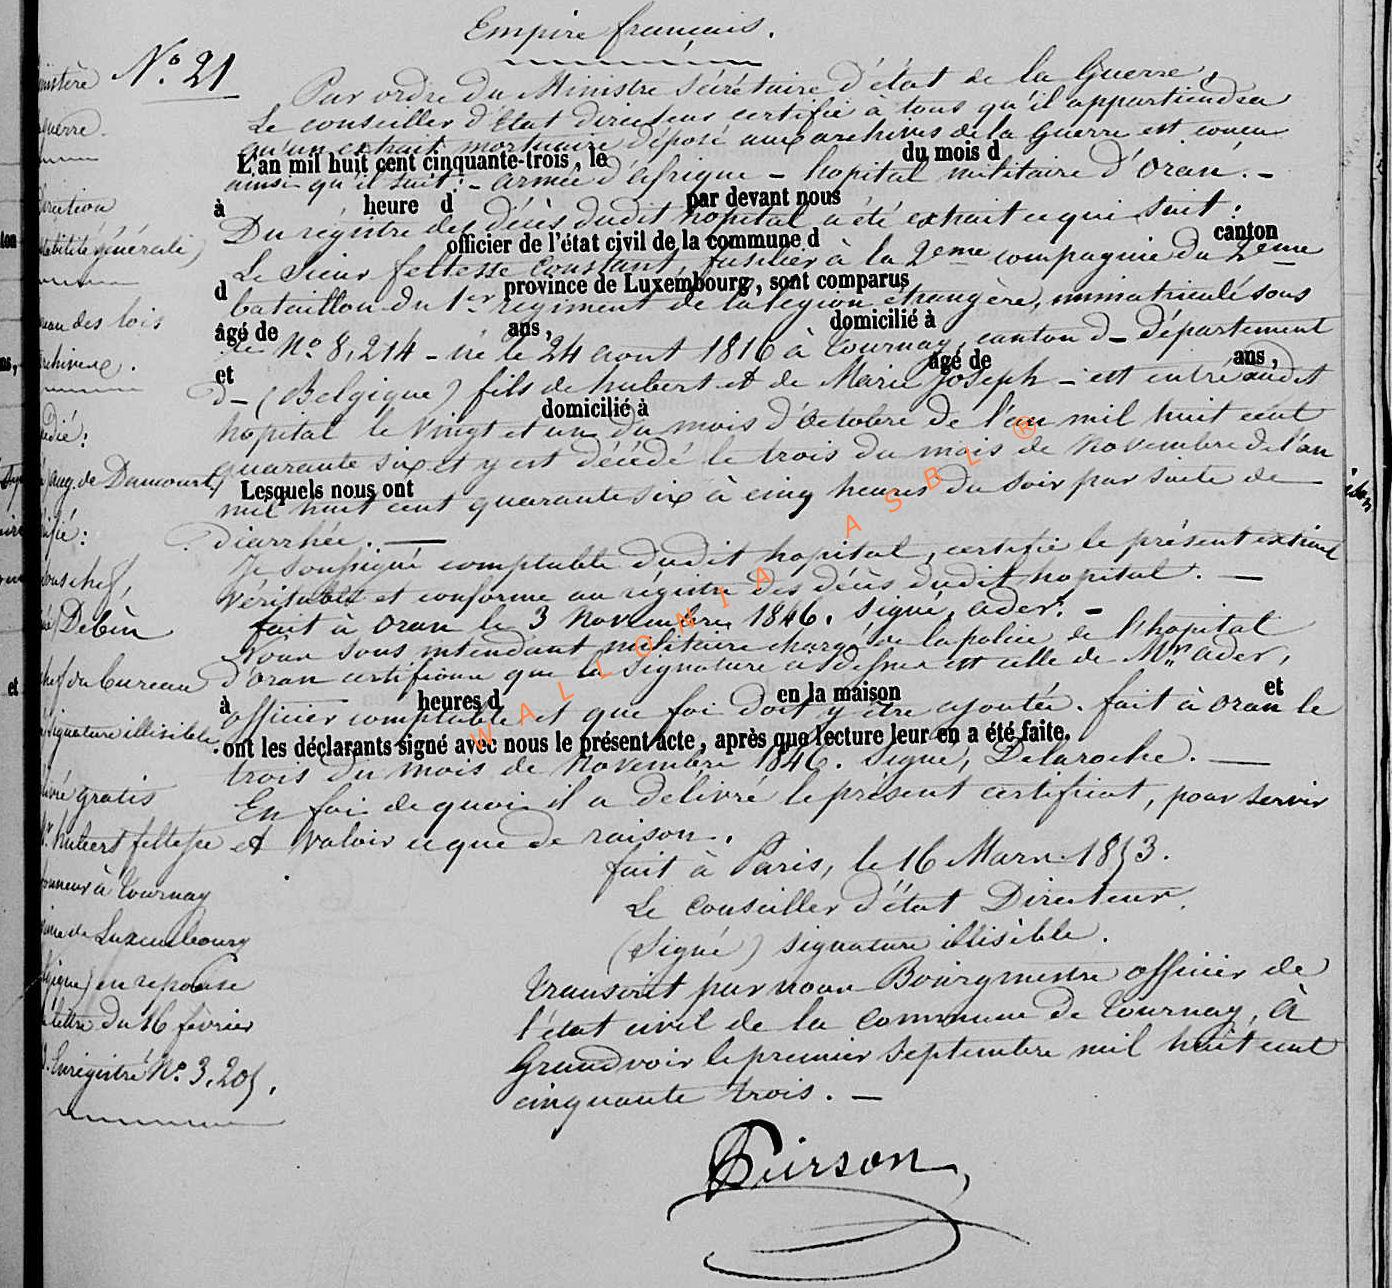 Empire français.
N.° 21
Par ordre du Ministre Sécrétaire d'état de la Guerre,
Le conseiller d'Etat directeur certifie à tous qu'il appartiendra
qu'un extrait mortuaire déposé aux archives de la Guerre est conçu
L'an mil huit cent cinquante-trois, le du mois d
ainsi qu'il suit: - armée d'afrique - hopital militaire d'oran. -
à heure d par devant nous
Du régistre des décès dudit hopital a été extrait ce qui suit:
officier de l'état civil de la commune d canton
Le Sieur feltesse Constant, fusilier à la 2eme compagnie du 2eme
d province de Luxembourg, sont comparus
bataillon du 1er regiment de la légion étrangère, immatriculé sous
âgé de ans, domicilié à
le N° 8,214 - né le 24 aout 1816 à Tournay, canton d- département
et âgé de ans,
d- (Belgique) fils de hubert et de Marie Joseph - est entré audit
domicilié à
hopital le vingt et un du mois d'Octobre de l'an mil huit cent
quarante six et y est décédé le trois du mois de Novembre de l'an
Lesquels nous ont
mil huit cent quarante six à cinq heures du soir par suite de
diarrhée. -
Je soussigné comptable dudit hopital, certifie le présent extrait
véritable et conforme au régistre des décès dudit hopital. -
fait à oran le 3 Novembre 1846. signé, ader. -
Nous sous intendant militaire chargé de la police de l'hopital
d'oran certifions que la signature ci dessus est celle de Mr ader,
à heures d en la maison et
officier comptable et que foi doit y être ajoutée. fait à oran le
ont les déclarants signé avec nous le présent acte, après que lecture leur en a été faite.
trois du mois de Novembre 1846. signé, Delaroche. -
En foi de quoi il a délivré le présent certificat, pour servir
et valoir ce que de raison.
fait à Paris, le 16 Mars 1853.
Le Conseiller d'état Directeur.
(Signé) signature illisible.
Transcrit par nous Bourgmestre officier de
l'état civil de la commune de Tournay, à
Grandvoir le premier septembre mil huit cent
cinquante trois. -
Pierson
nistère
guerre.
des lois
archives.
aug. de Damourt,
sous chef,
Debin
chef du bureau
signature illisible
gratis
hubert feltesse
à Tournay
de Luxembourg
en réponse
lettre du 16 février
Enregistré N° 3,205.
WALLONIA ASBL ®